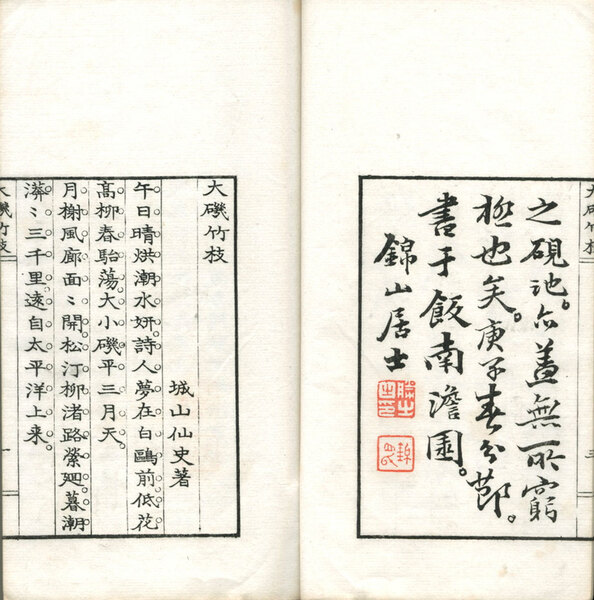 大磯竹枝
之硯池。亦蓋無所窮
極也矣。庚子春分節。
書于飯南澹園。
錦山居士
大磯竹枝
城山仙史著
午日晴烘潮水妍詩人夢在白鷗前低花
高柳春駘蕩大小磯平三月天。
月榭風廊面〻開松汀柳渚路縈廻暮潮
漭〻三千里遠自太平洋上来。
大磯竹枝
一